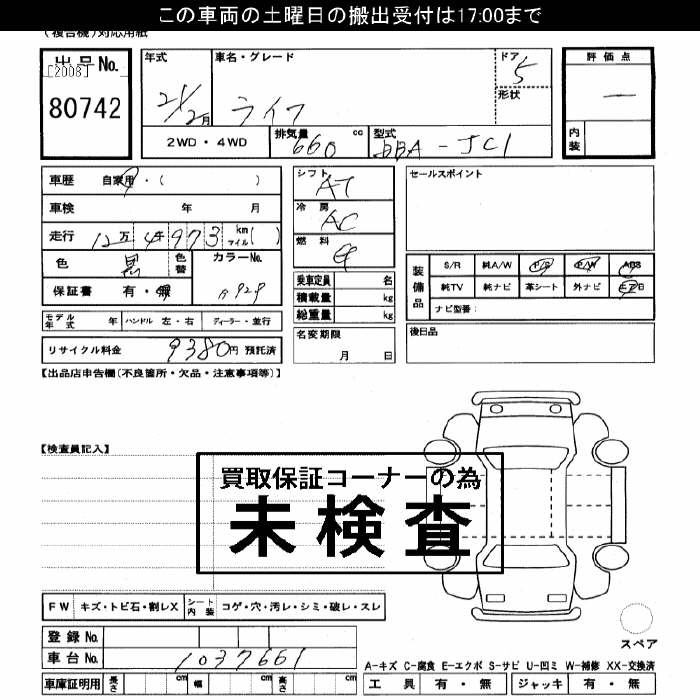 この車両の土曜日の搬出受付は17:00まで
(複合機)対応用紙
出品No. [2008] 80742
年式 21/2月
車名・グレード ライフ
ドア 5
形状
評価点 —
内装
2WD・4WD
排気量 660 cc
型式 DBA-JC1
車歴 自家用・( )
車検 年 月
走行 12万4千973 km マイル( )
色 黒 色替 カラーNo.
保証書 有・無 929
モデル年式 年 ハンドル 左・右 ディーラー・並行
リサイクル料金 9380円 預託済
シフト AT
冷房 AC
燃料
乗車定員 名
積載量 kg
総重量 kg
名変期限 月 日
セールスポイント
装備品 S/R 純A/W P/S P/W ABS
純TV 純ナビ 革シート 外ナビ
ナビ型番:
後日品
【出品店申告欄(不良箇所・欠品・注意事項等)】
【検査員記入】
買取保証コーナーの為
未検査
FW キズ・トビ石・割レX シート内装 コゲ・穴・汚レ・シミ・破レ・スレ
登録No.
車台No. 1037661
車庫証明用 長さ cm 幅 cm 高さ cm
スペア
A-キズ C-腐食 E-エクボ S-サビ U-凹ミ W-補修 XX-交換済
工具 有・無 ジャッキ 有・無